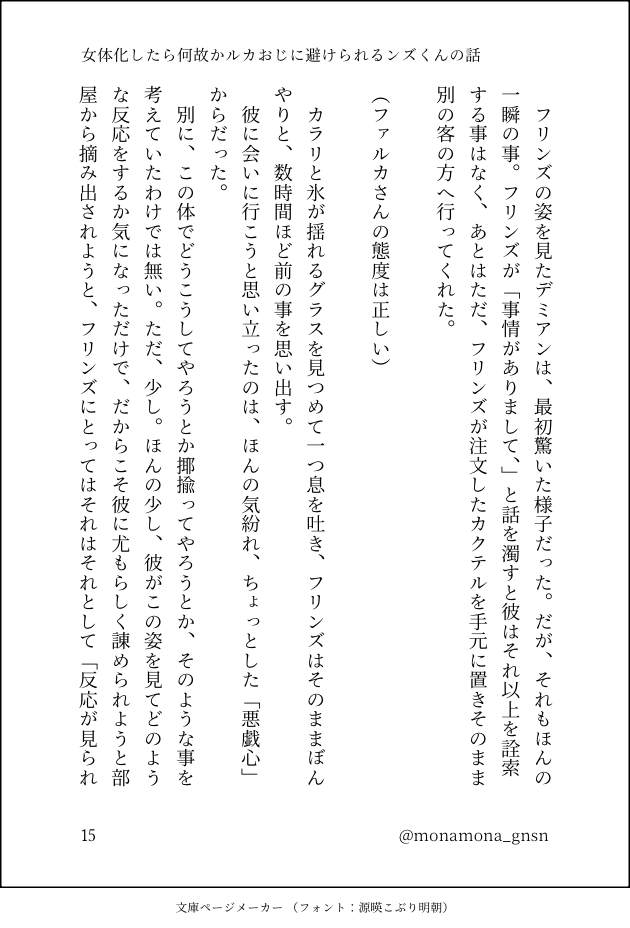 女体化したら何故かルカおじに避けられるンズくんの話
フリンズの姿を見たデミアンは、最初驚いた様子だった。だが、それもほんの
一瞬の事。フリンズが「事情がありまして、」と話を濁すと彼はそれ以上を詮索
する事はなく、あとはただ、フリンズが注文したカクテルを手元に置きそのまま
別の客の方へ行ってくれた。
（ファルカさんの態度は正しい）
カラリと氷が揺れるグラスを見つめて一つ息を吐き、フリンズはそのままぼん
やりと、数時間ほど前の事を思い出す。
彼に会いに行こうと思い立ったのは、ほんの気紛れ、ちょっとした「悪戯心」
からだった。
別に、この体でどうこうしてやろうとか揶揄ってやろうとか、そのような事を
考えていたわけでは無い。ただ、少し。ほんの少し、彼がこの姿を見てどのよう
な反応をするか気になっただけで、だからこそ彼に尤もらしく諌められようと部
屋から摘み出されようと、フリンズにとってはそれはそれとして「反応が見られ
15
@monamona_gnsn
文庫ページメーカー（フォント：源暎こぶり明朝）